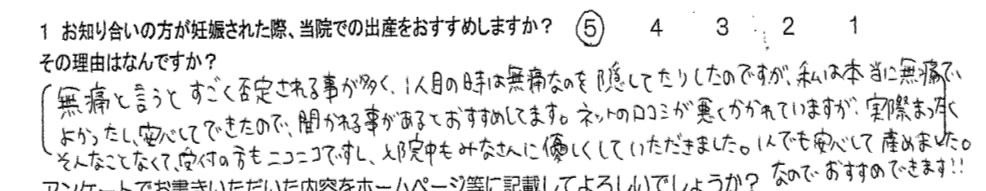 1 お知り合いの方が妊娠された際、当院での出産をおすすめしますか？ ⑤ 4 3 2 1
その理由はなんですか？
無痛と言うとすごく否定される事が多く、1人目の時は無痛なのを隠してたりしたのですが、私は本当に無痛で、
よかったし、安心してできたので、聞かれる事があるとおすすめしてます。ネットの口コミが悪くかかれていますが、実際まったく
そんなことなくて、受付の方もニコニコですし、入院中もみなさんに優しくしていただきました。1人でも安心して産めました。
なので おすすめできます!!
アンケートでお書きいただいた内容をホームページ等に記載してよろしいでしょうか？